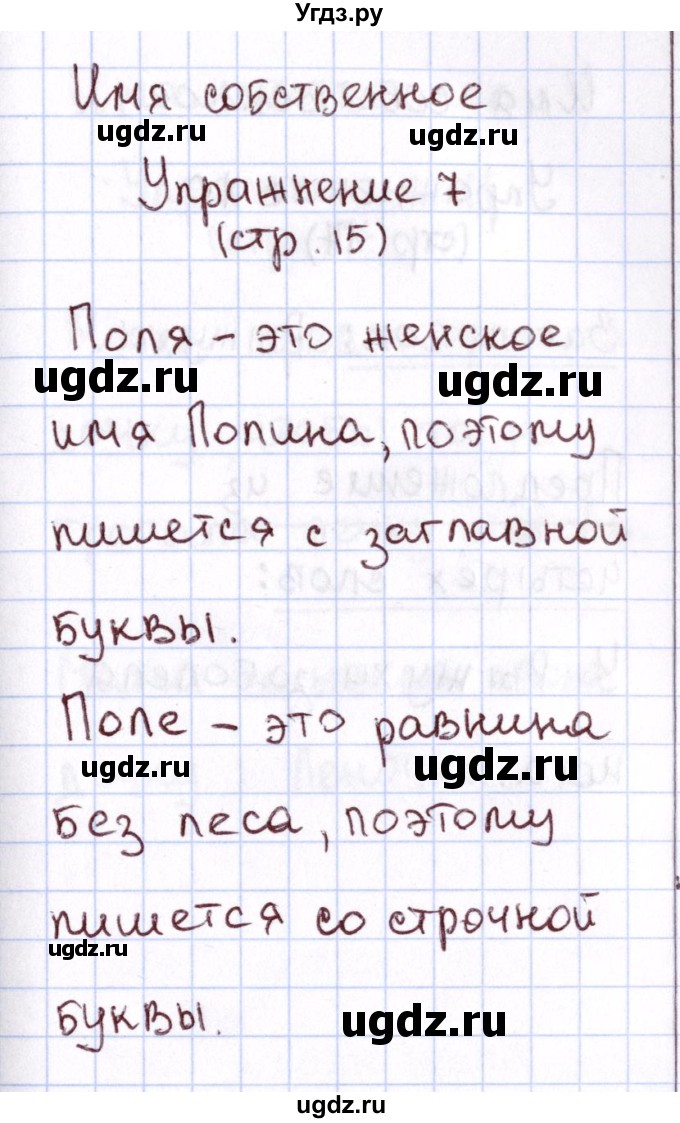 Угдз.ру
Имя собственное
ugdz.ru ugdz.ru
Упражнение 7
(стр. 15)
Поля - это женское
ugdz.ru ugdz.ru
имя Полина, поэтому
пишется с заглавной
буквы.
Поле - это равнина
ugdz.ru ugdz.ru
без леса, поэтому
пишется со строчной
ugdz.ru
буквы.
ugdz.ru
ugdz.ru